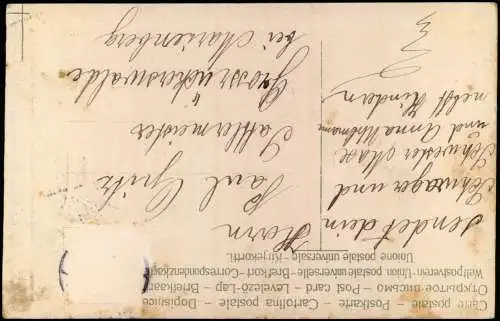 Carte postale – Postkarte – Cartolina postale – Dopisnice
Открытое письмо – Post card – Levelező-Lap – Briefkaart
Weltpostverein-Union postale universelle-Brefkort-Correspondenzkarte
Unione postale universale - Kirjekortti.
Herrn
Paul
Sattlermeister
Grossrückerswalde
bei Marienberg
sendet dein
Schwager und
Schwester Max
und Anna
nebst Kindern